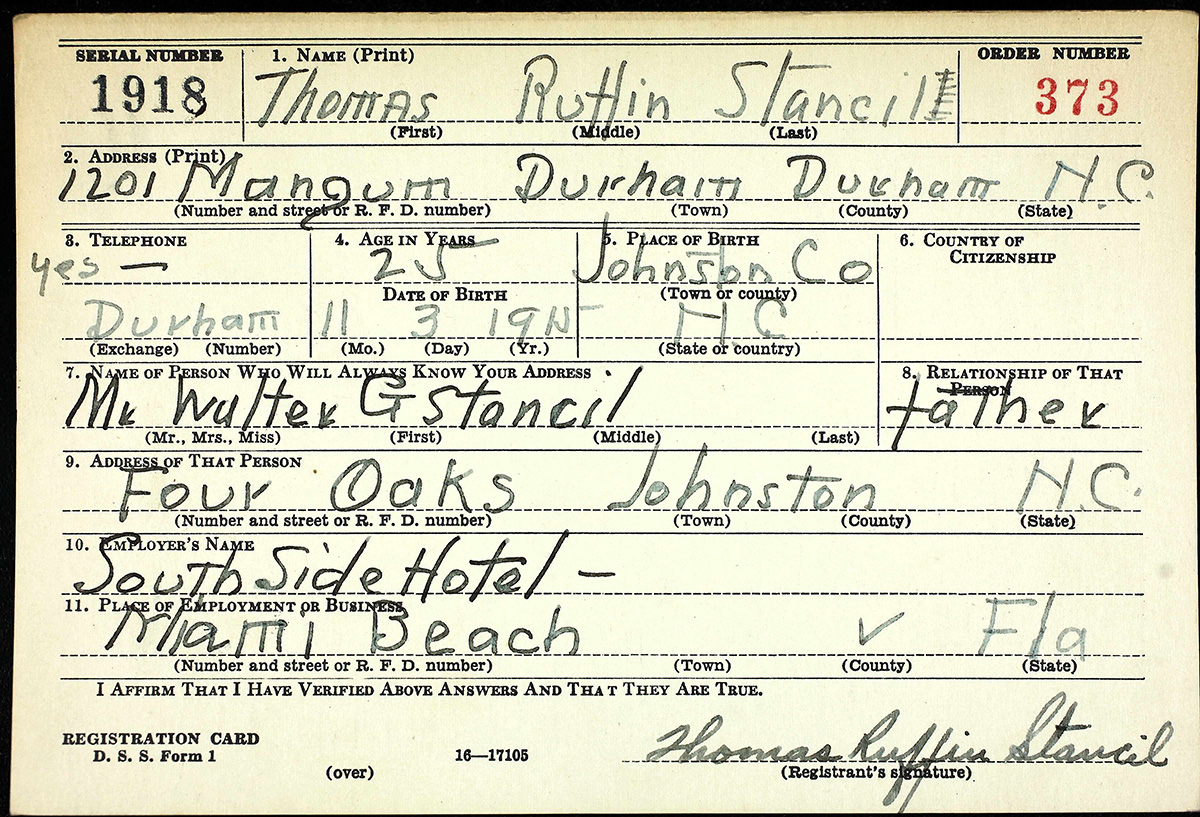 SERIAL NUMBER 1. NAME (Print) ORDER NUMBER
1918 Thomas Ruffin Stancil 373
(First) (Middle) (Last)
2. ADDRESS (Print)
1201 Mangum Durham Durham N.C.
(Number and street or R. F. D. number) (Town) (County) (State)
3. TELEPHONE 4. AGE IN YEARS 5. PLACE OF BIRTH 6. COUNTRY OF CITIZENSHIP
yes — 25 Johnston Co
DATE OF BIRTH (Town or county)
Durham 11 3 1915 N C
(Exchange) (Number) (Mo.) (Day) (Yr.) (State or country)
7. NAME OF PERSON WHO WILL ALWAYS KNOW YOUR ADDRESS 8. RELATIONSHIP OF THAT PERSON
Mr Walter G Stancil father
(Mr., Mrs., Miss) (First) (Middle) (Last)
9. ADDRESS OF THAT PERSON
Four Oaks Johnston N.C.
(Number and street or R. F. D. number) (Town) (County) (State)
10. EMPLOYER'S NAME
South Side Hotel —
11. PLACE OF EMPLOYMENT OR BUSINESS
Miami Beach ✓ Fla
(Number and street or R. F. D. number) (Town) (County) (State)
I AFFIRM THAT I HAVE VERIFIED ABOVE ANSWERS AND THAT THEY ARE TRUE.
REGISTRATION CARD Thomas Ruffin Stancil
D. S. S. Form 1 16—17105
(over) (Registrant's signature)